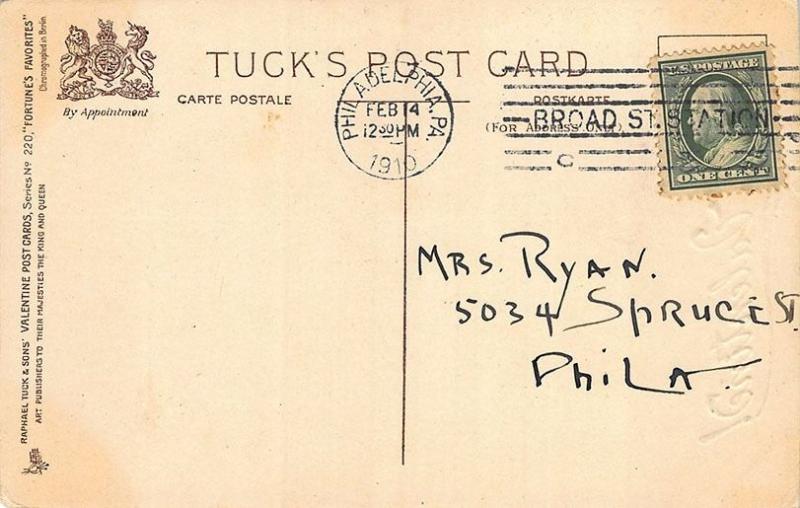 TUCK'S POST CARD
CARTE POSTALE
POSTKARTE
(FOR ADDRESS ONLY)
By Appointment
RAPHAEL TUCK & SONS' VALENTINE POST CARDS, SERIES Nº 220, "FORTUNE'S FAVORITES"
Chromographed in Berlin
ART PUBLISHERS TO THEIR MAJESTIES THE KING AND QUEEN
PHILADELPHIA, PA.
FEB 14
12 30 PM
1910
BROAD ST. STATION
C
U.S. POSTAGE
ONE CENT
MRS. RYAN.
5034 SPRUCE ST.
PHILA.